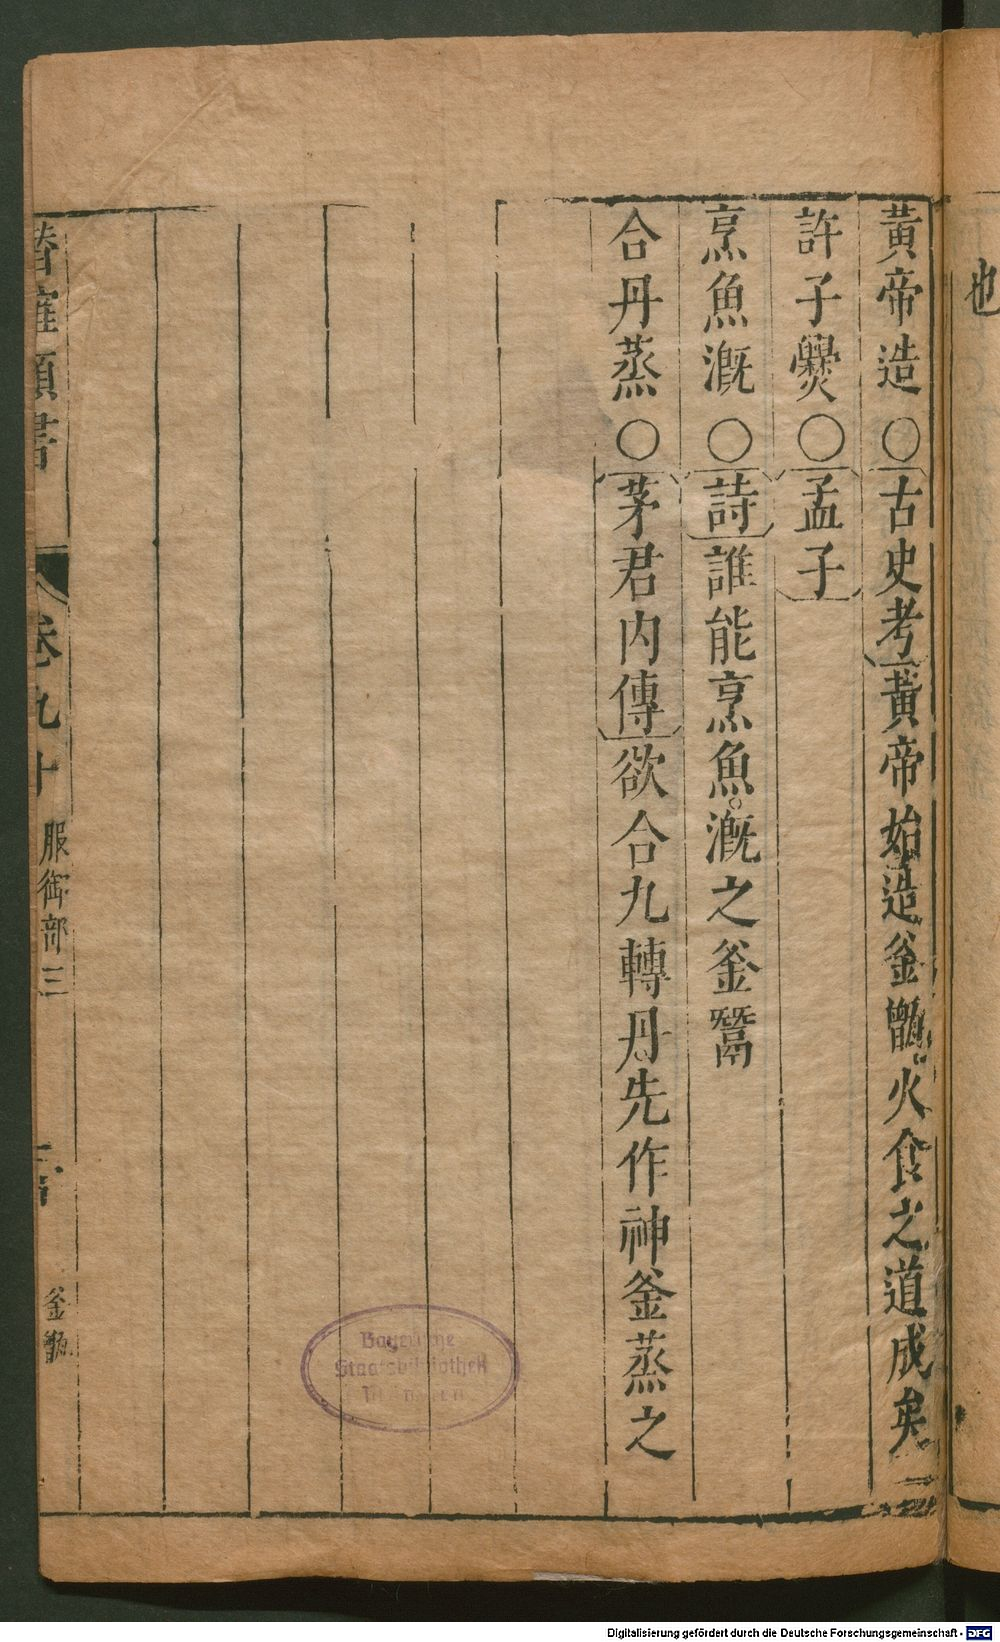 也
黃帝造○古史考黃帝始造釜甑火食之道成矣
許子爨○孟子
烹魚溉○詩誰能烹魚。溉之釜鬵
合丹蒸○茅君内傳欲合九轉丹先作神釜蒸之
卷九十 服御部三
釜甑
Bayerische
Staatsbibliothek
München
Digitalisierung gefördert durch die Deutsche Forschungsgemeinschaft - DFG